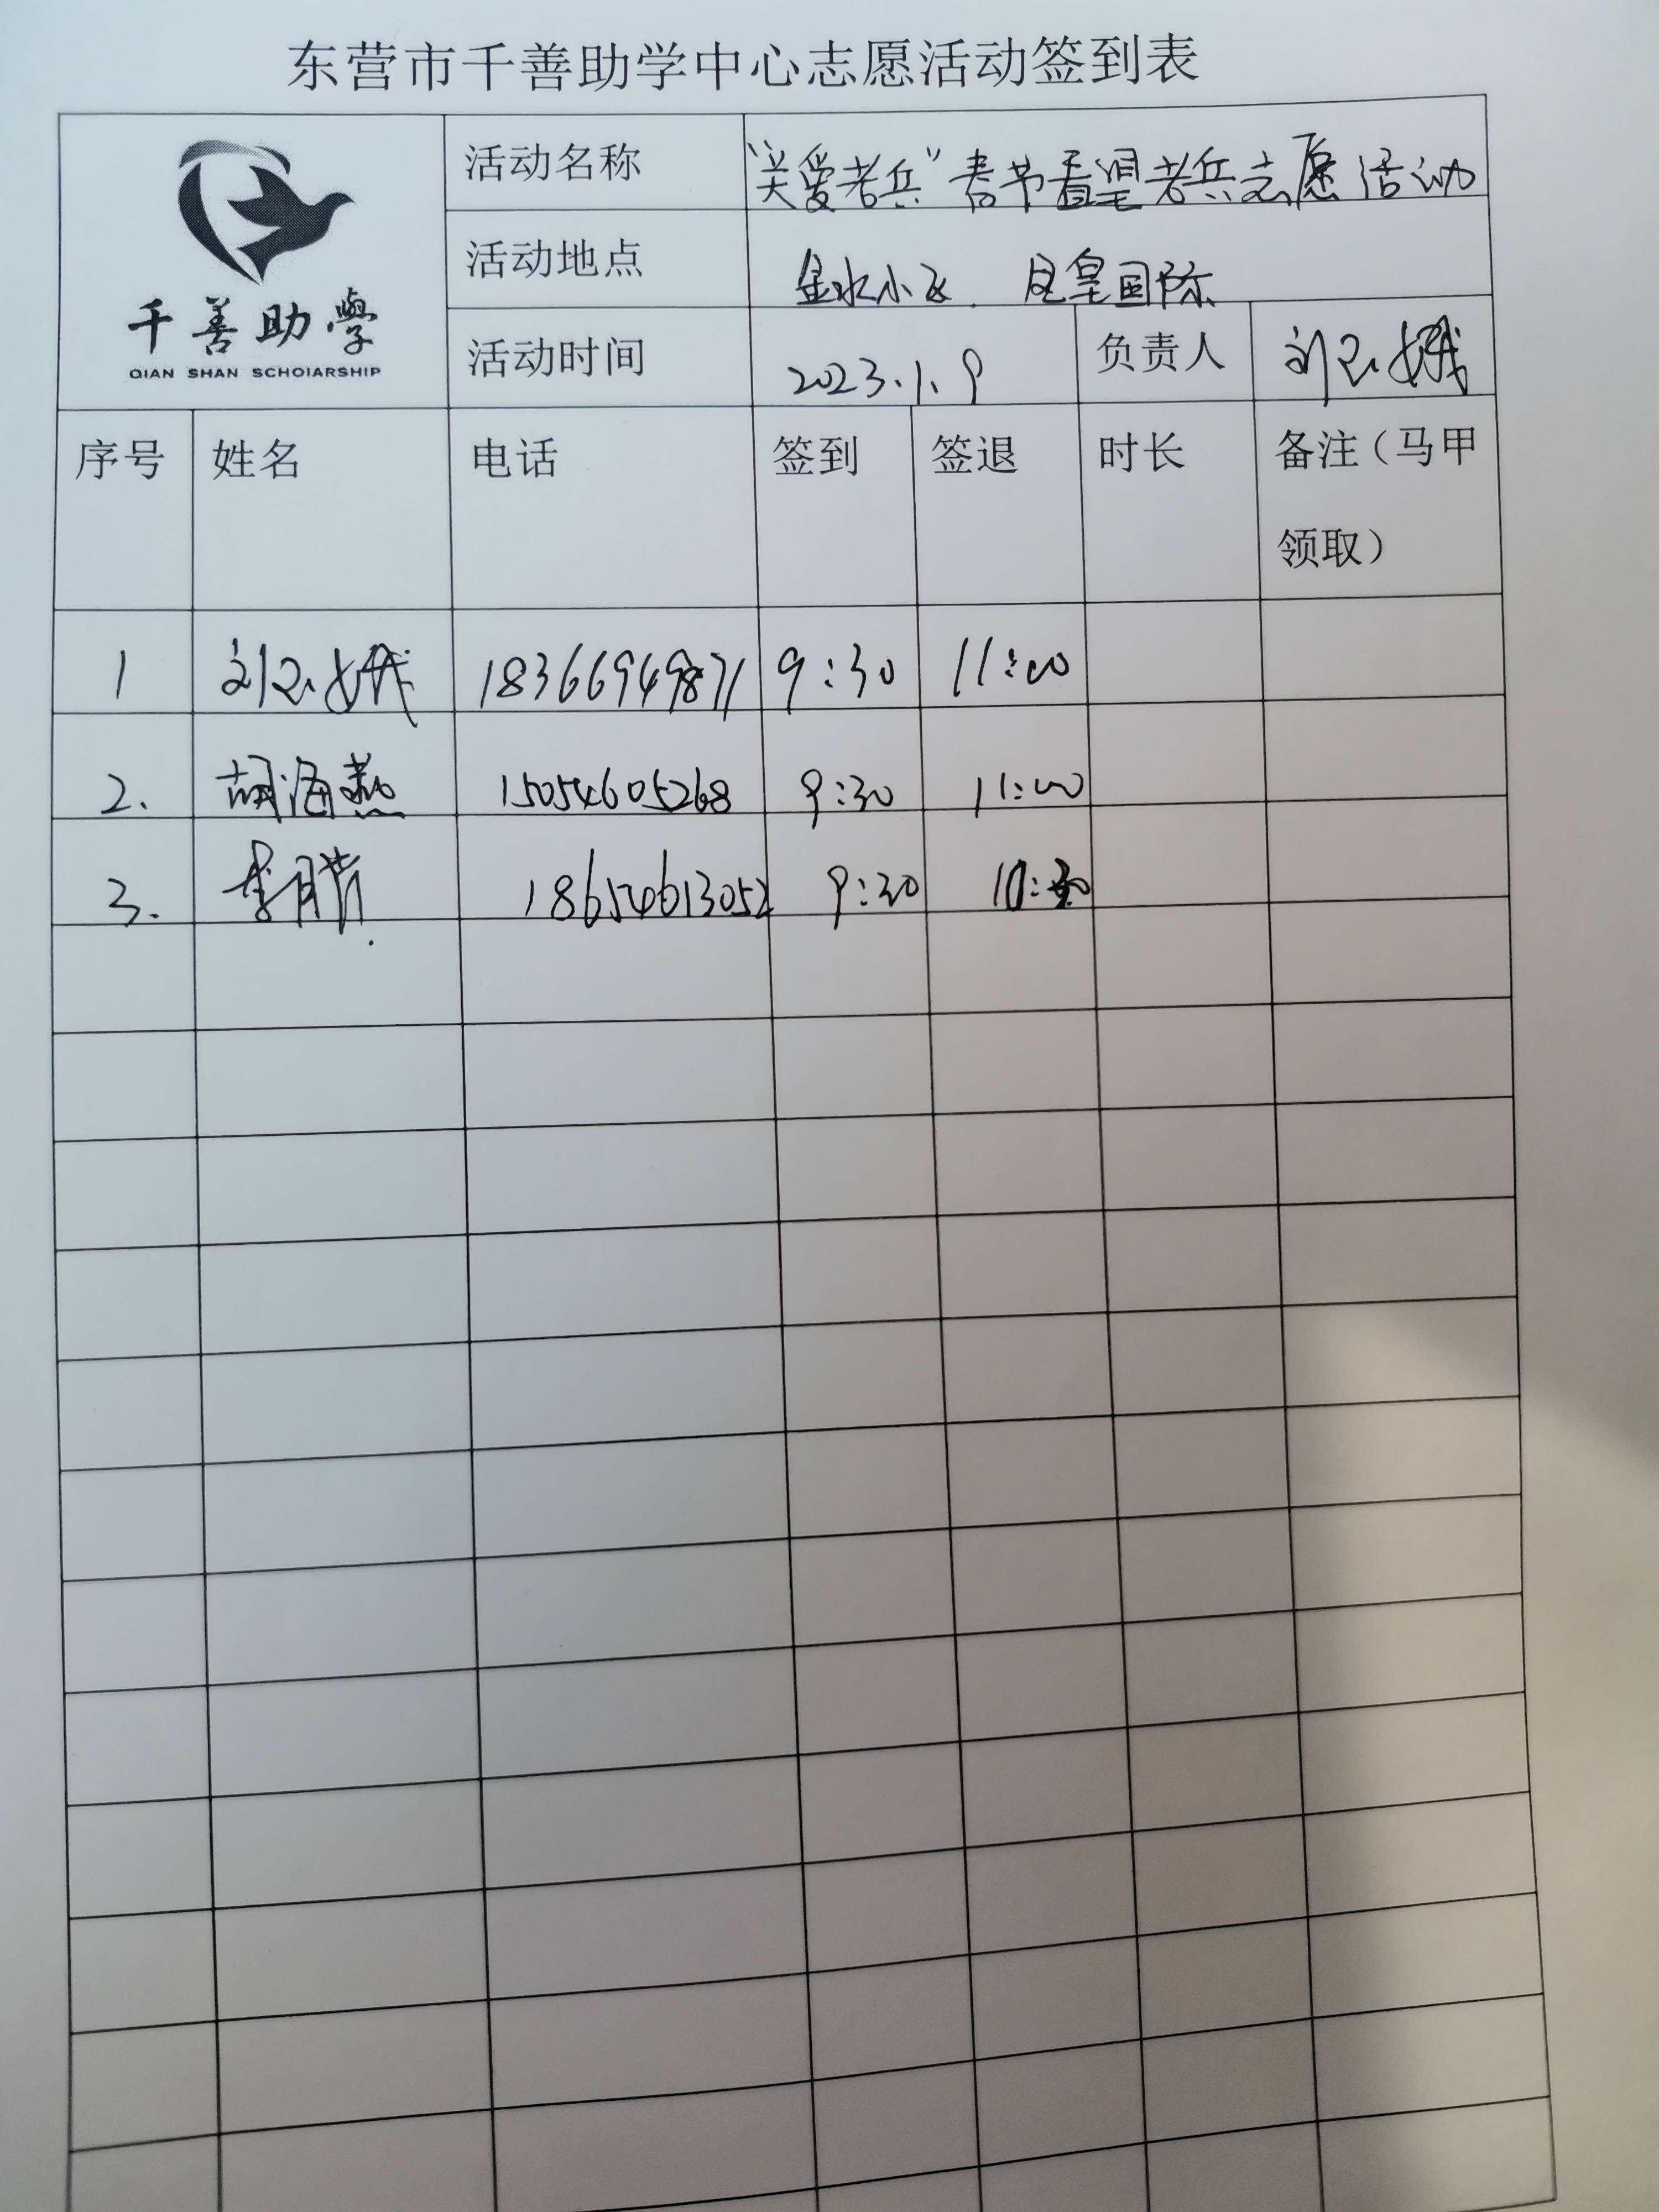 东营市千善助学中心志愿活动签到表
千善助學
QIAN SHAN SCHOIARSHIP
活动名称 “关爱老兵”春节看望老兵志愿活动
活动地点 金水小区 凤皇国际
活动时间 2023.1.9 负责人 刘玉娥
序号 姓名 电话 签到 签退 时长 备注（马甲
领取）
1 刘玉娥 18366949871 9:30 11:00
2. 胡海燕 15054605268 9:30 11:00
3. 18654613052 9:30